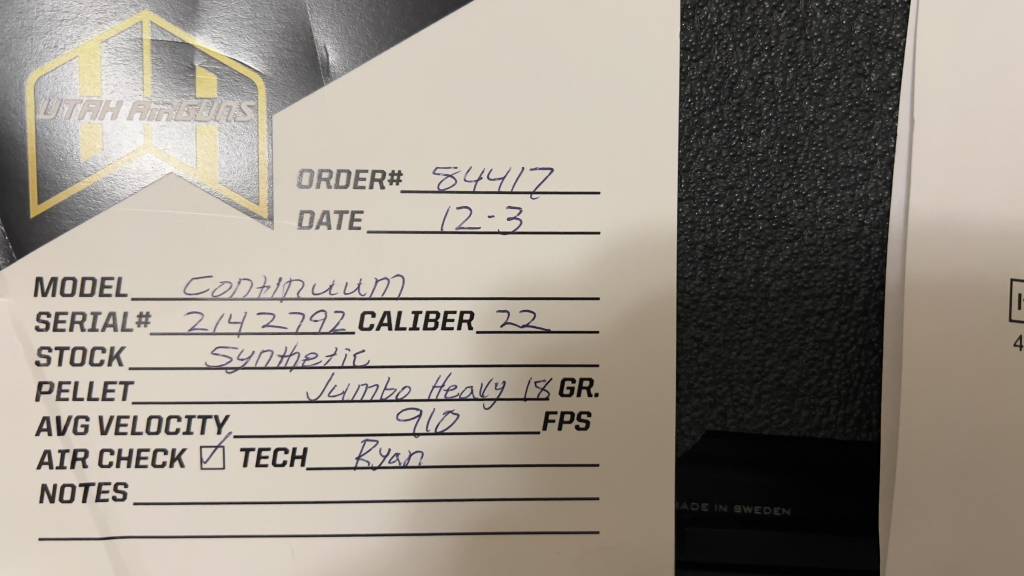 UTAH AIRGUNS
ORDER# 84417
DATE 12-3
MODEL Continuum
SERIAL# 2142792 CALIBER 22
STOCK Synthetic
PELLET Jumbo Heavy 18 GR.
AVG VELOCITY 910 FPS
AIR CHECK ☑ TECH Ryan
NOTES
MADE IN SWEDEN
4